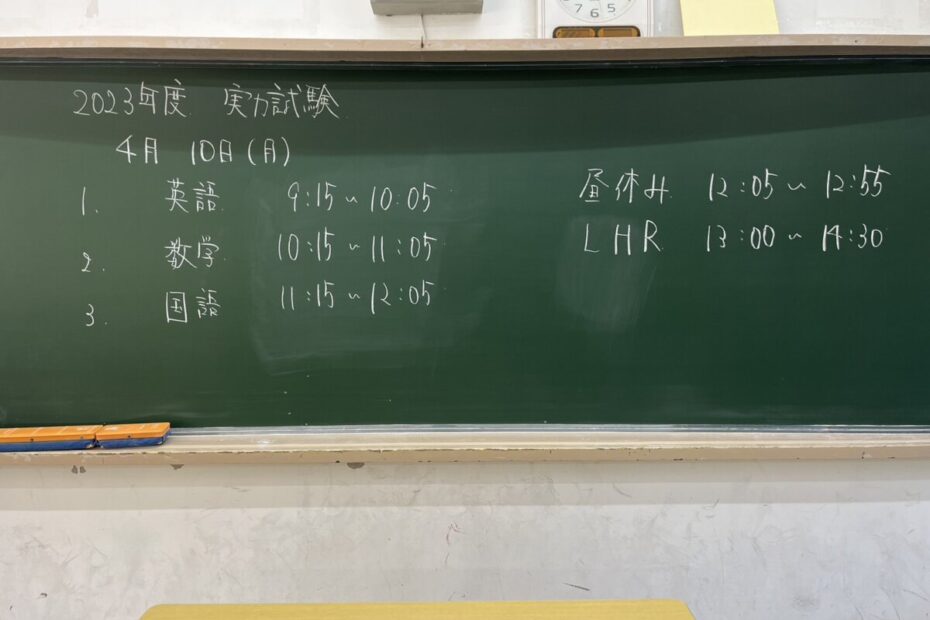 2023年度 実力試験
4月 10日(月)
1. 英語 9:15~10:05
2. 数学 10:15~11:05
3. 国語 11:15~12:05
昼休み 12:05~12:55
LHR 13:00~14:30
7 6 5